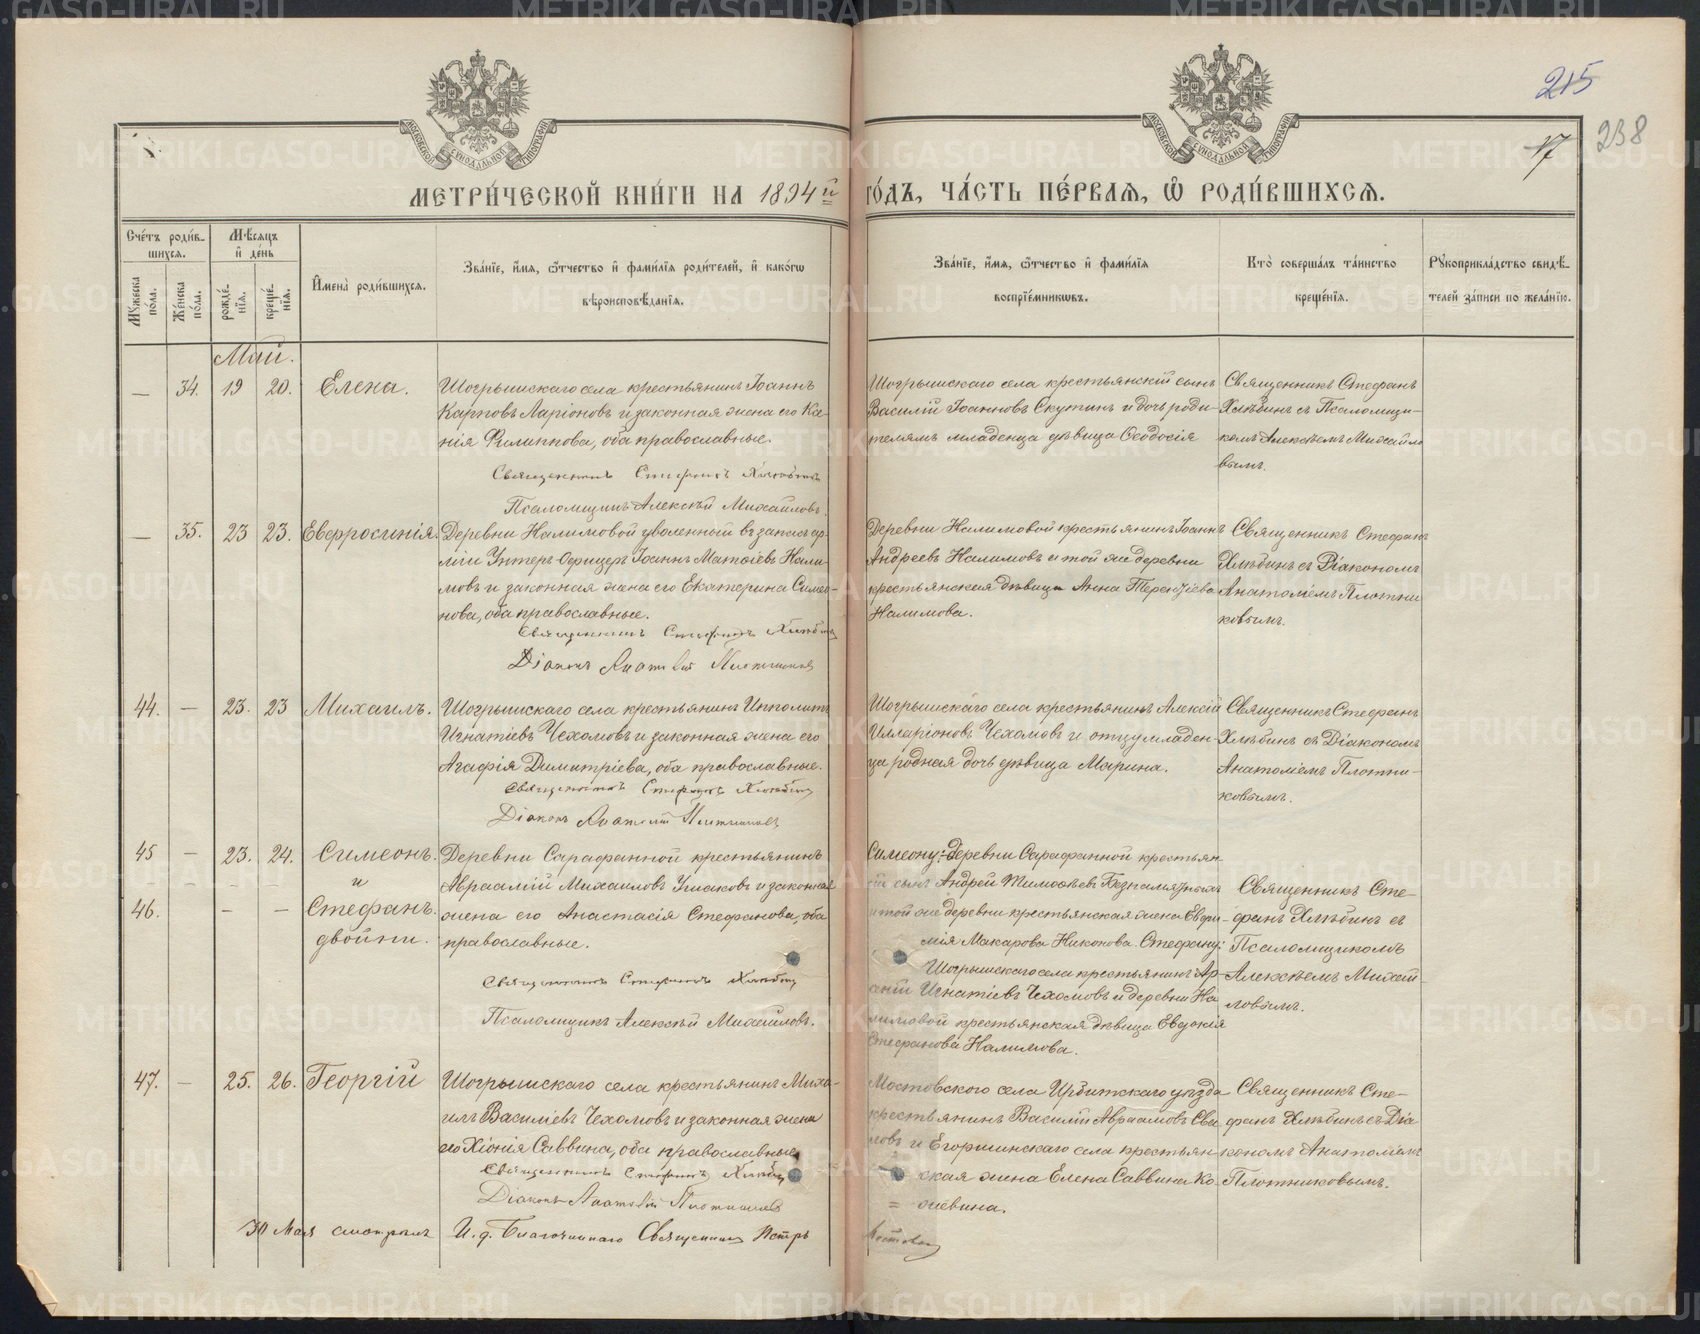 METRIKI.GASO-URAL.RU
215
17
238
МОСКОВСКОЙ СѴНОДАЛЬНОЙ ТИПОГРАФІИ
МОСКОВСКОЙ СѴНОДАЛЬНОЙ ТИПОГРАФІИ
МЕТРИ́ЧЕСКОЙ КНИ́ГИ НА 1894й ГО́ДЪ, ЧА́СТЬ ПЕ́РВАЯ, Ѿ РОДИ́ВШИХСЯ.
Сче́тъ роди́вшихся.
Мꙋ́жеска по́ла.
Же́нска по́ла.
Мѣ́сяцъ и҆ де́нь
рожде́нїя.
креще́нїя.
И҆мена̀ роди́вшихся.
Зва́нїе, и҆́мя, ѻ҆́тчество и҆ фами́лїя роди́телей, и҆ како́гѡ
вѣроисповѣ́данїя.
Зва́нїе, и҆́мя, ѻ҆́тчество и҆ фами́лїя
воспрїе́мникѡвъ.
Кто̀ соверша́лъ та́инство
креще́нїя.
Рꙋкоприкла́дство свидѣ́телей за́писи по жела́нїю.
Май.
— 34. 19 20. Елена.
Шогрышскаго села крестьянинъ Іоаннъ
Карповъ Ларіоновъ и законная жена его Ксенія Филиппова, оба православные.
Священникъ Стефанъ Хлѣбинъ
Псаломщикъ Алексѣй Михайловъ.
Шогрышскаго села крестьянскій сынъ
Василій Іоанновъ Скутинъ и дочь родителямъ младенца дѣвица Ѳеодосія
Священникъ Стефанъ
Хлѣбинъ съ Псаломщикомъ Алексѣемъ Михайловымъ.
— 35. 23 23. Евфросинія.
Деревни Налимовой уволенный въ запасъ арміи Унтеръ Офицеръ Іоаннъ Матѳіевъ Налимовъ и законная жена его Екатерина Симеонова, оба православные.
Священникъ Стефанъ Хлѣбинъ
Діаконъ Анатолій Плотниковъ
Деревни Налимовой крестьянинъ Іоаннъ
Андреевъ Налимовъ и той же деревни
крестьянская дѣвица Анна Терентіева
Налимова.
Священникъ Стефанъ
Хлѣбинъ съ Діакономъ
Анатоліемъ Плотниковымъ.
44. — 23. 23 Михаилъ.
Шогрышскаго села крестьянинъ Ипполитъ
Игнатіевъ Чехомовъ и законная жена его
Агафія Димитріева, оба православные.
Священникъ Стефанъ Хлѣбинъ
Діаконъ Анатолій Плотниковъ
Шогрышскаго села крестьянинъ Алексій
Илларіоновъ Чехомовъ и отцу младенца родная дочь дѣвица Марина.
Священникъ Стефанъ
Хлѣбинъ съ Діакономъ
Анатоліемъ Плотниковымъ.
45 — 23. 24. Симеонъ.
и
46. — — Стефанъ.
двойни.
Деревни Сарафанной крестьянинъ
Авраамій Михаиловъ Ушаковъ и законная
жена его Анастасія Стефанова, оба
православные.
Священникъ Стефанъ Хлѣбинъ
Псаломщикъ Алексѣй Михайловъ.
Симеону: деревни Сарафанной крестьянскій сынъ Андрей Тимоѳѣевъ Безпамятныхъ
и той же деревни крестьянская жена Евфимія Макарова Никонова. Стефану:
Шогрышскаго села крестьянинъ
Игнатіевъ Чехомовъ и деревни Налимовой крестьянская дѣвица Евдокія
Стефанова Налимова.
Священникъ Стефанъ Хлѣбинъ съ
Псаломщикомъ
Алексѣемъ Михайловымъ.
47. — 25. 26. Георгій
Шогрышскаго села крестьянинъ Михаилъ Василіевъ Чехомовъ и законная жена
его Хіонія Саввина, оба православные
Священникъ Стефанъ Хлѣбинъ
Діаконъ Анатолій Плотниковъ
Мостовского села Ирбитскаго уѣзда
крестьянинъ Василій Авраамовъ
и Егоршинскаго села крестьянская жена Елена Саввина
Священникъ Стефанъ Хлѣбинъ съ Діакономъ Анатоліемъ
Плотниковымъ.
30 Мая смотрѣлъ И. д. Благочиннаго Священникъ Петръ